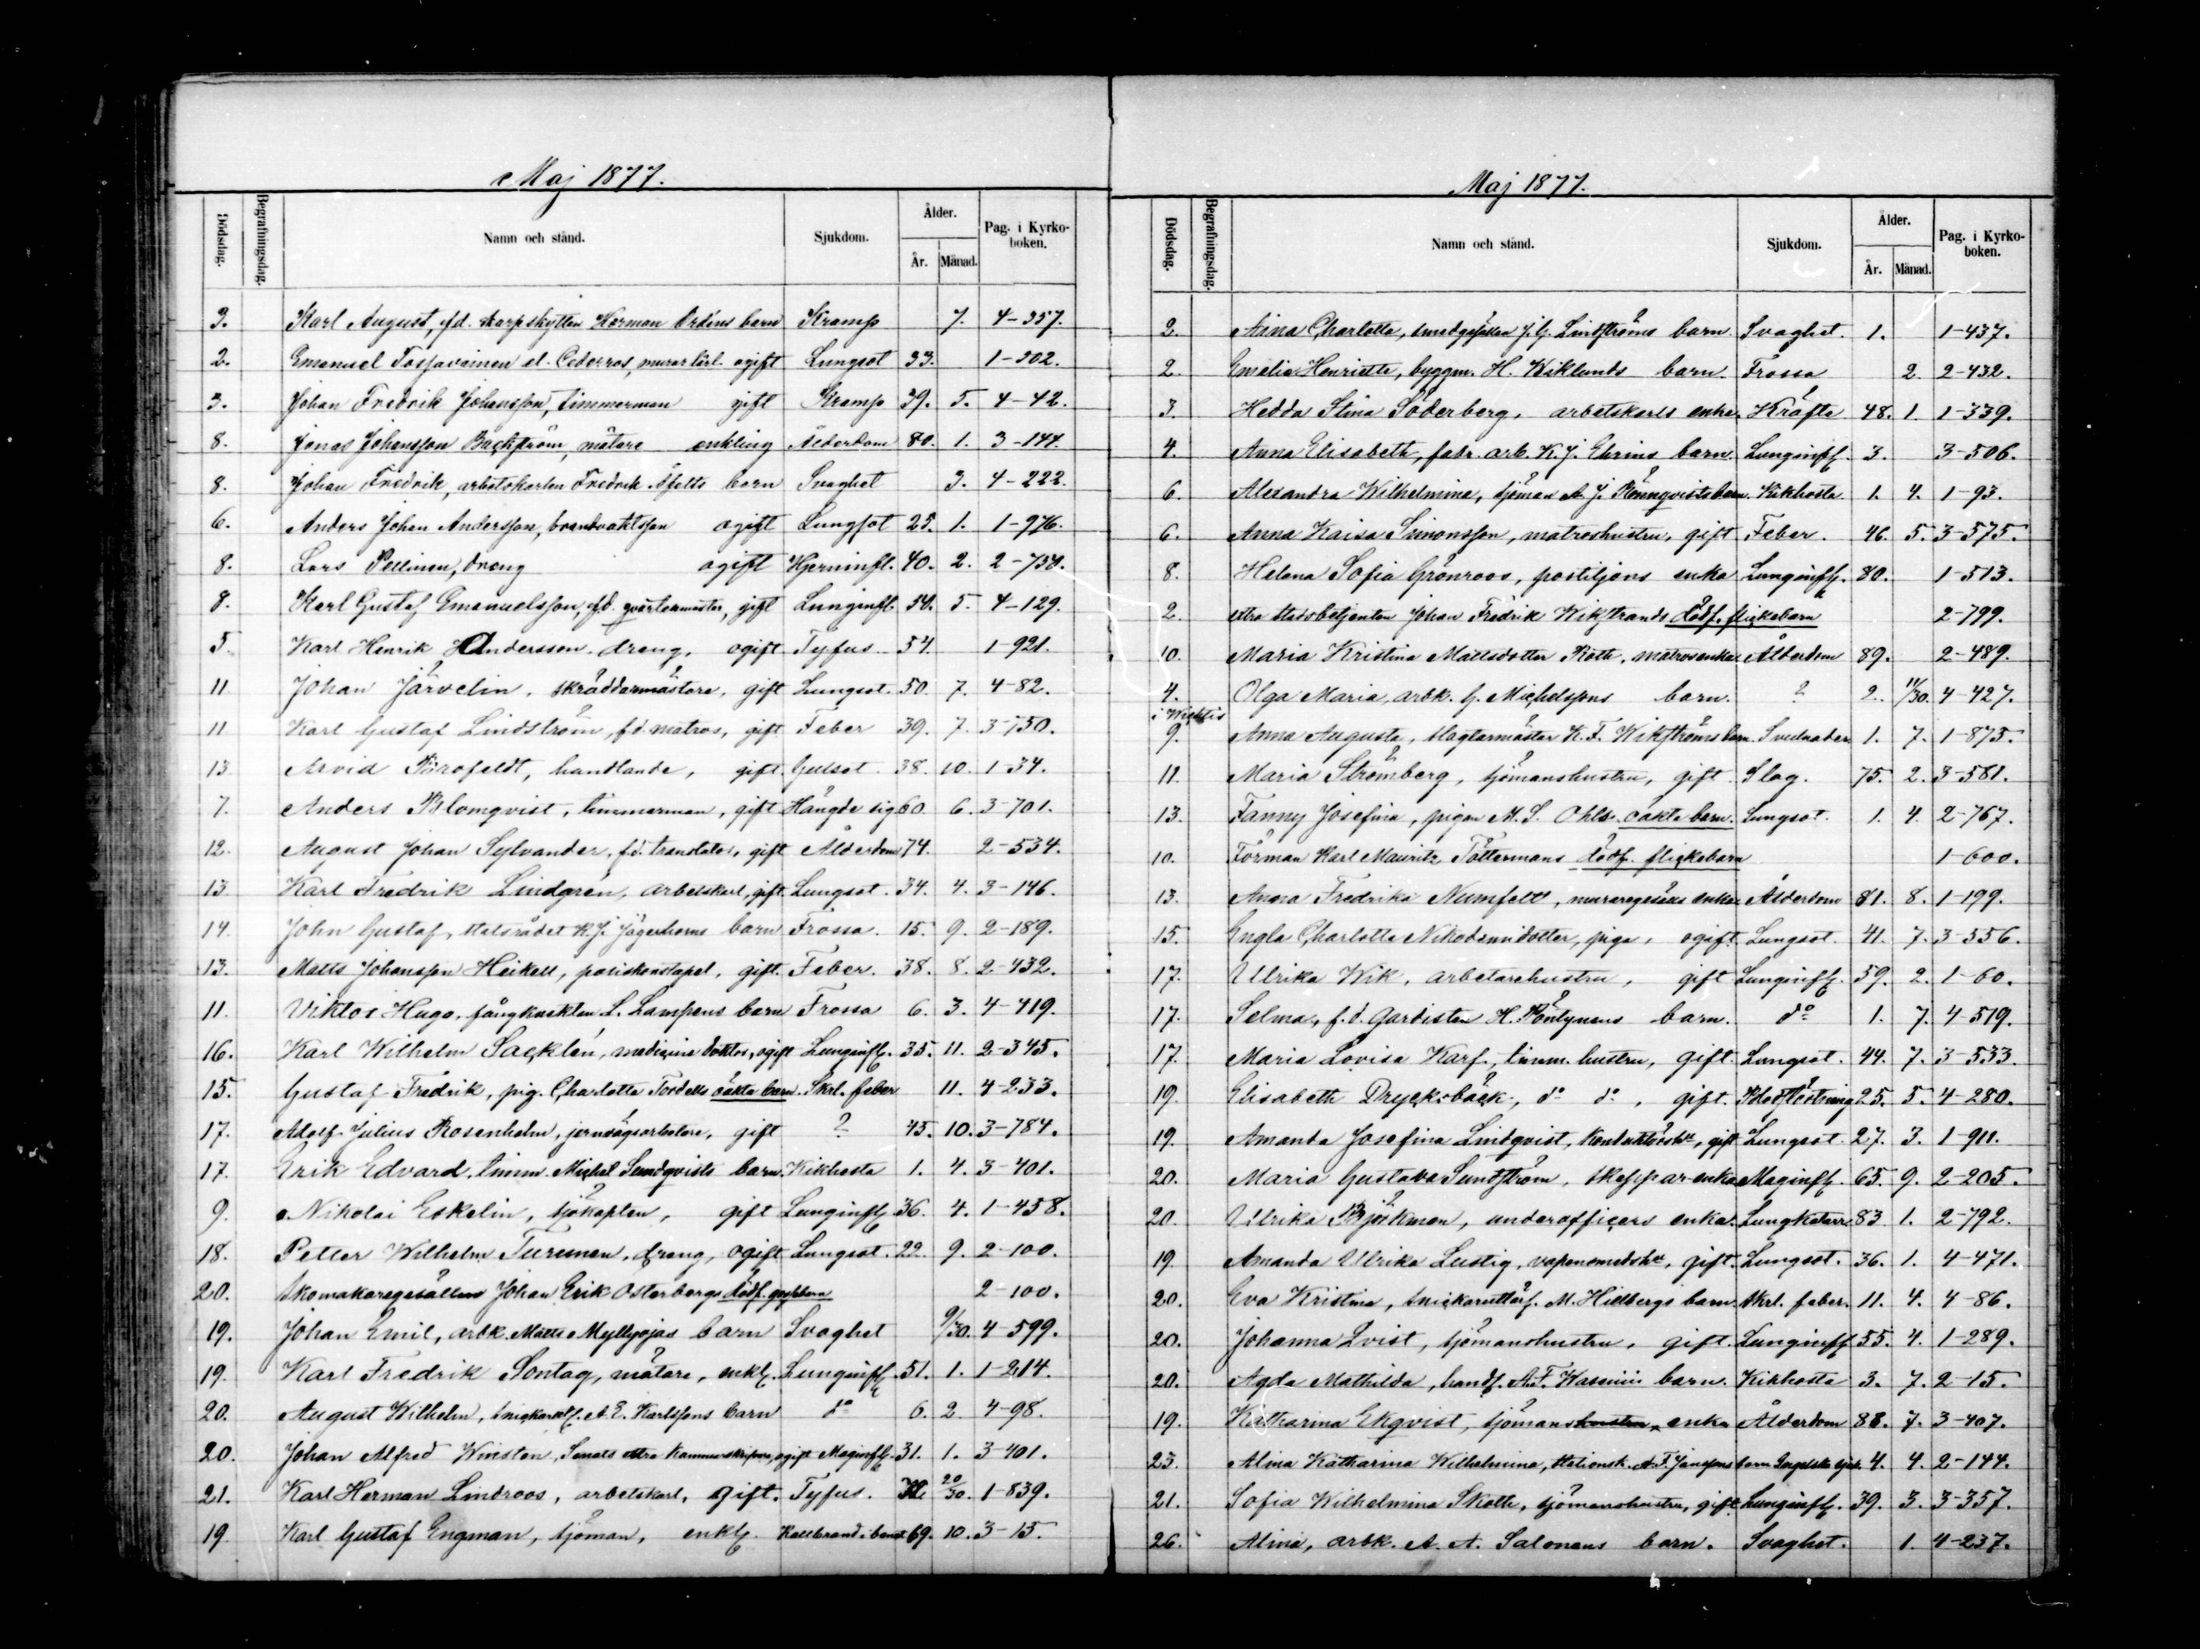 Maj 1877.
Dödsdag. Begrafningsdag. Namn och stånd. Sjukdom. Ålder. År. Månad. Pag. i Kyrkoboken.
3. Karl August, f.d. skarpskytten Herman Ordéns barn Kramp 7. 4-357.
2. Emanuel Tossavainen el. Cederros, murarlärl. ogift Lungsot 33. 1-302.
3. Johan Fredrik Johansson, timmerman gift Kramp 39. 5. 4-42.
8. Jonas Johansson Backström, mätare enkling Ålderdom 80. 1. 3-144.
8. Johan Fredrik, arbetskarlen Fredrik barn Svaghet 3. 4-222.
6. Anders Johan Andersson, brandvaktsson ogift Lungsot 25. 1. 1-976.
8. Lars Pellinen, dreng ogift Hjerninfl. 40. 2. 2-750.
8. Karl Gustaf Emanuelsson, f.d. qvartermästar, gift Lunginfl. 50. 5. 4-129.
5. Karl Henrik Andersson, dreng, ogift Tyfus 54. 1-921.
11. Johan Järvelin, skräddarmästare, gift Lungsot. 50. 7. 4-82.
11. Karl Gustaf Lindström, f.d. matros, gift Feber 39. 7. 3-750.
13. Arvid Brofeldt, handlande, gift Gulsot. 38. 10. 1-34.
7. Anders Blomqvist, timmerman, gift Hängde sig 60. 6. 3-701.
12. August Johan Sylvander, f.d. translator, gift Ålderdom 74. 2-534.
13. Karl Fredrik Lindgren, arbetskarl, gift Lungsot. 34. 4. 3-146.
14. John Gustaf, statsrådet K. J. Jägerhorns barn Frossa. 15. 9. 2-189.
13. Matts Johansson Heikell, gift. Feber. 38. 8. 2-432.
11. Viktor Hugo, fångknekten L. Lampens barn Frossa 6. 3. 4-419.
16. Karl Wilhelm Sacklén, medicine doktor, ogift Lunginfl. 35. 11. 2-345.
15. Gustaf Fredrik, pig. Charlotta Tordells oäkta barn. Skrl. feber 11. 4-233.
17. Adolf Julius Rosenholm, jernvägsarbetare, gift ? 45. 10. 3-784.
17. Erik Edvard, timm. Michel Sundqvists barn. Kikhosta 1. 4. 3-401.
9. Nikolai Eskelin, sjökapten, gift Lunginfl. 36. 4. 1-458.
18. Petter Wilhelm Turunen, dreng, ogift Lungsot. 22. 9. 2-100.
20. Skomakaregesällen Johan Erik Österbergs dödf. gossebarn 2-100.
19. Johan Emil, arbk. Matts Myllyojas barn Svaghet 9/30. 4-599.
19. Karl Fredrik Sontag, mätare, enkl. Lunginfl. 51. 1. 1-214.
20. August Wilhelm, A. E. Karlssons barn do 6. 2. 4-98.
20. Johan Alfred Winsten, Senats extra kammarskrifvare, ogift Maginfl. 31. 1. 3-401.
21. Karl Herman Lindroos, arbetskarl, gift. Tyfus. 20/30. 1-839.
19. Karl Gustaf Engman, sjöman, enkl. Kallbrand i benet 69. 10. 3-15.
Maj 1877.
Dödsdag. Begrafningsdag. Namn och stånd. Sjukdom. Ålder. År. Månad. Pag. i Kyrkoboken.
2. Aina Charlotta, smedgesällen J. G. Lindströms barn. Svaghet. 1. 1-437.
2. Emelia Henriette, byggm. H. Wiklunds barn. Frossa 2. 2-432.
3. Hedda Stina Söderberg, arbetskarls enka. Kräfta 48. 1. 1-339.
4. Anna Elisabeth, fabr. arb. K. J. barn. Lunginfl. 3. 3-506.
6. Alexandra Wilhelmina, sjöman A. J. Rönnqvists barn. Kikhosta. 1. 4. 1-93.
6. Anna Kaisa Simonsson, matroshustru, gift Feber. 46. 5. 3-575.
8. Helena Sofia Grönroos, postiljons enka Lunginfl. 80. 1-513.
2. extra stadsbetjenten Johan Fredrik Wikstrands dödf. flickebarn 2-799.
10. Maria Kristina Mattsdotter Roth, matrosenka Ålderdom 89. 2-489.
4. Olga Maria, arbk. G. Michelssons barn. ? 2. 11/30. 4-427.
i Wichtis
9. Anna Augusta, slagtarmästar K. F. Wikströms barn. 1. 7. 1-873.
11. Maria Strömberg, sjömanshustru, gift Slag. 75. 2. 3-581.
13. Fanny Josefina, pigan M. S. Ohls. oäkta barn. Lungsot. 1. 4. 2-767.
10. Förman Karl Mauritz Töttermans dödf. flickebarn 1-600.
13. Anna Fredrika Numfelt, muraregesälls enka Ålderdom 81. 8. 1-199.
15. Engla Charlotta Nikodemidotter, piga, ogift Lungsot. 41. 7. 3-556.
17. Ulrika Wik, arbetarehustru, gift Lunginfl. 59. 2. 1-60.
17. Selma, f.d. Gardisten H. Pöntynens barn. do 1. 7. 4-519.
17. Maria Lovisa Karf, timm. hustru, gift. Lungsot. 44. 7. 3-533.
19. Elisabeth Dryckbäck, do do, gift. Blodstörtning 25. 5. 4-280.
19. Amanda Josefina Lindqvist, konduktörshu, gift Lungsot. 27. 3. 1-911.
20. Maria Gustava Sundström, skepparenka Maginfl. 65. 9. 2-205.
20. Ulrika Björkman, underofficers enka. Lungkatarr 83 1. 2-792.
19. Amanda Ulrika Lustig, vapensmedshu, gift. Lungsot. 36. 1. 4-471.
20. Eva Kristina, M. Hillbergs barn. Skrl. feber. 11. 4. 4-86.
20. Johanna Qvist, sjömanshustru, gift. Lunginfl. 55. 4. 1-289.
20. Agda Mathilda, handl. A. F. Wasenii barn. Kikhosta 3. 7. 2-15.
19. Katharina Ekqvist, sjömans hustru, enka Ålderdom 88. 7. 3-407.
23. Alina Katharina Wilhelmina, stationsk. A. F. Janssons barn. Engelska sjuk. 4. 4. 2-144.
21. Sofia Wilhelmina Skott, sjömanshustru, gift Lunginfl. 39. 3. 3-357.
26. Alina, arbk. A. A. Salonens barn. Svaghet. 1. 4-237.